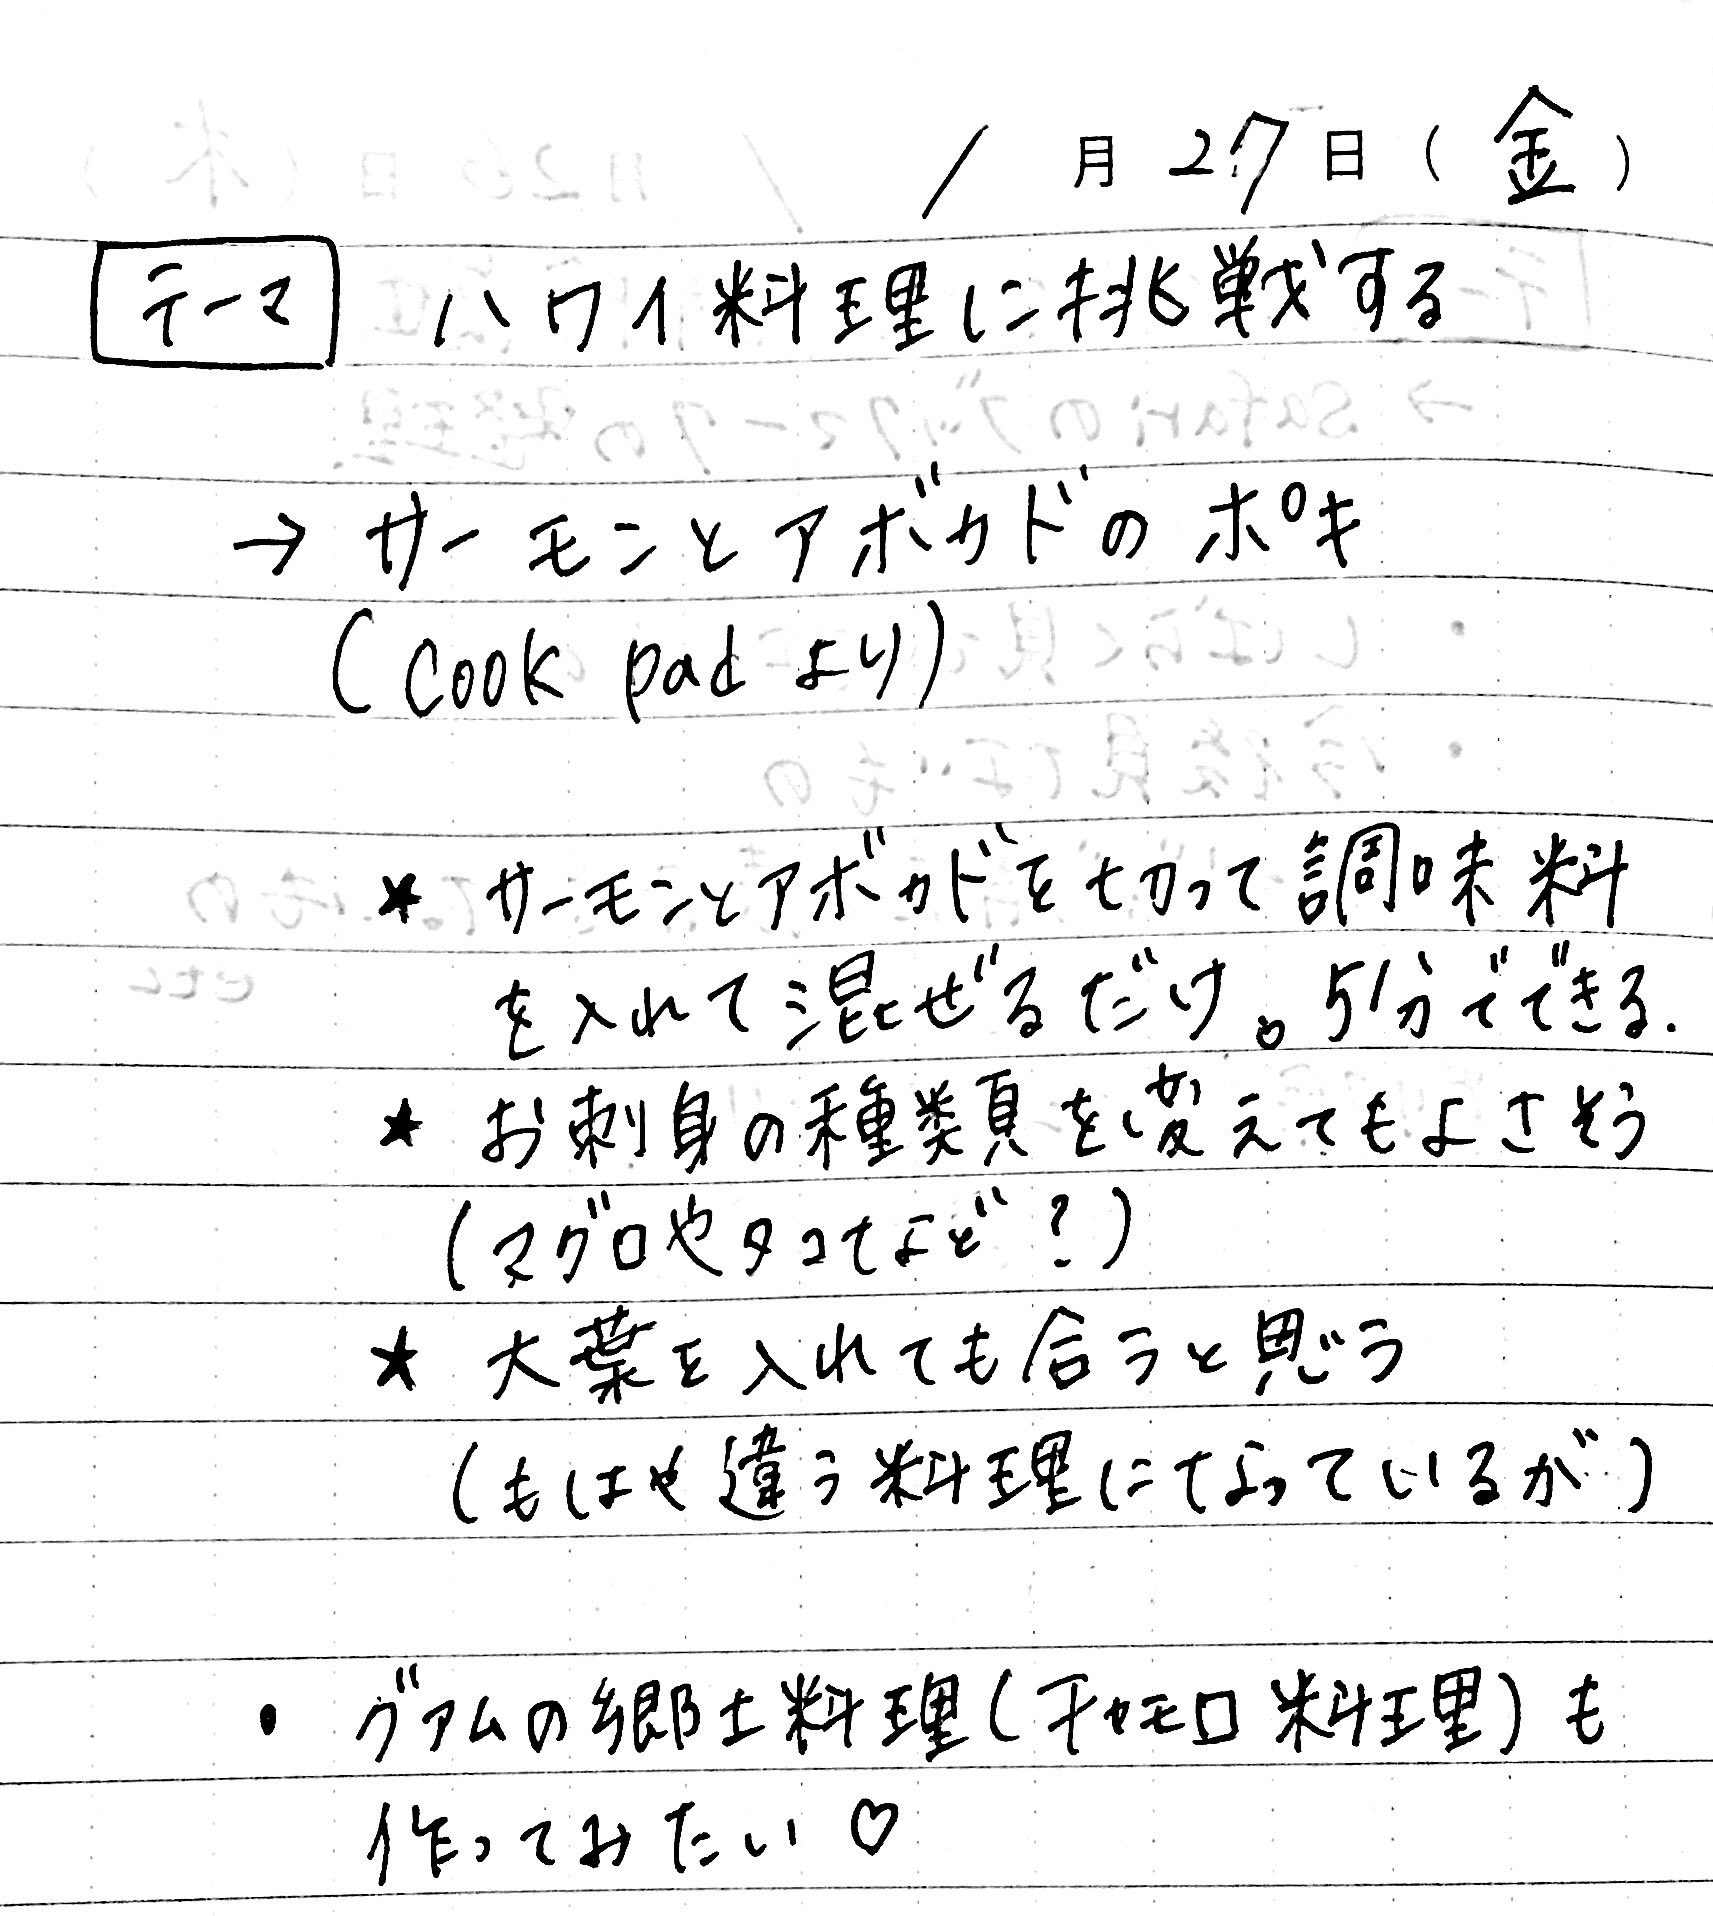 1月27日(金)
テーマ ハワイ料理に挑戦する
→ サーモンとアボカドのポキ
(Cook padより)
★ サーモンとアボカドを切って調味料
を入れて混ぜるだけ。5分でできる.
★ お刺身の種類を変えてもよさそう
(マグロやタコなど?)
★ 大葉を入れても合うと思う
(もはや違う料理になっているが)
• グアムの郷土料理(チャモロ料理)も
作ってみたい♡